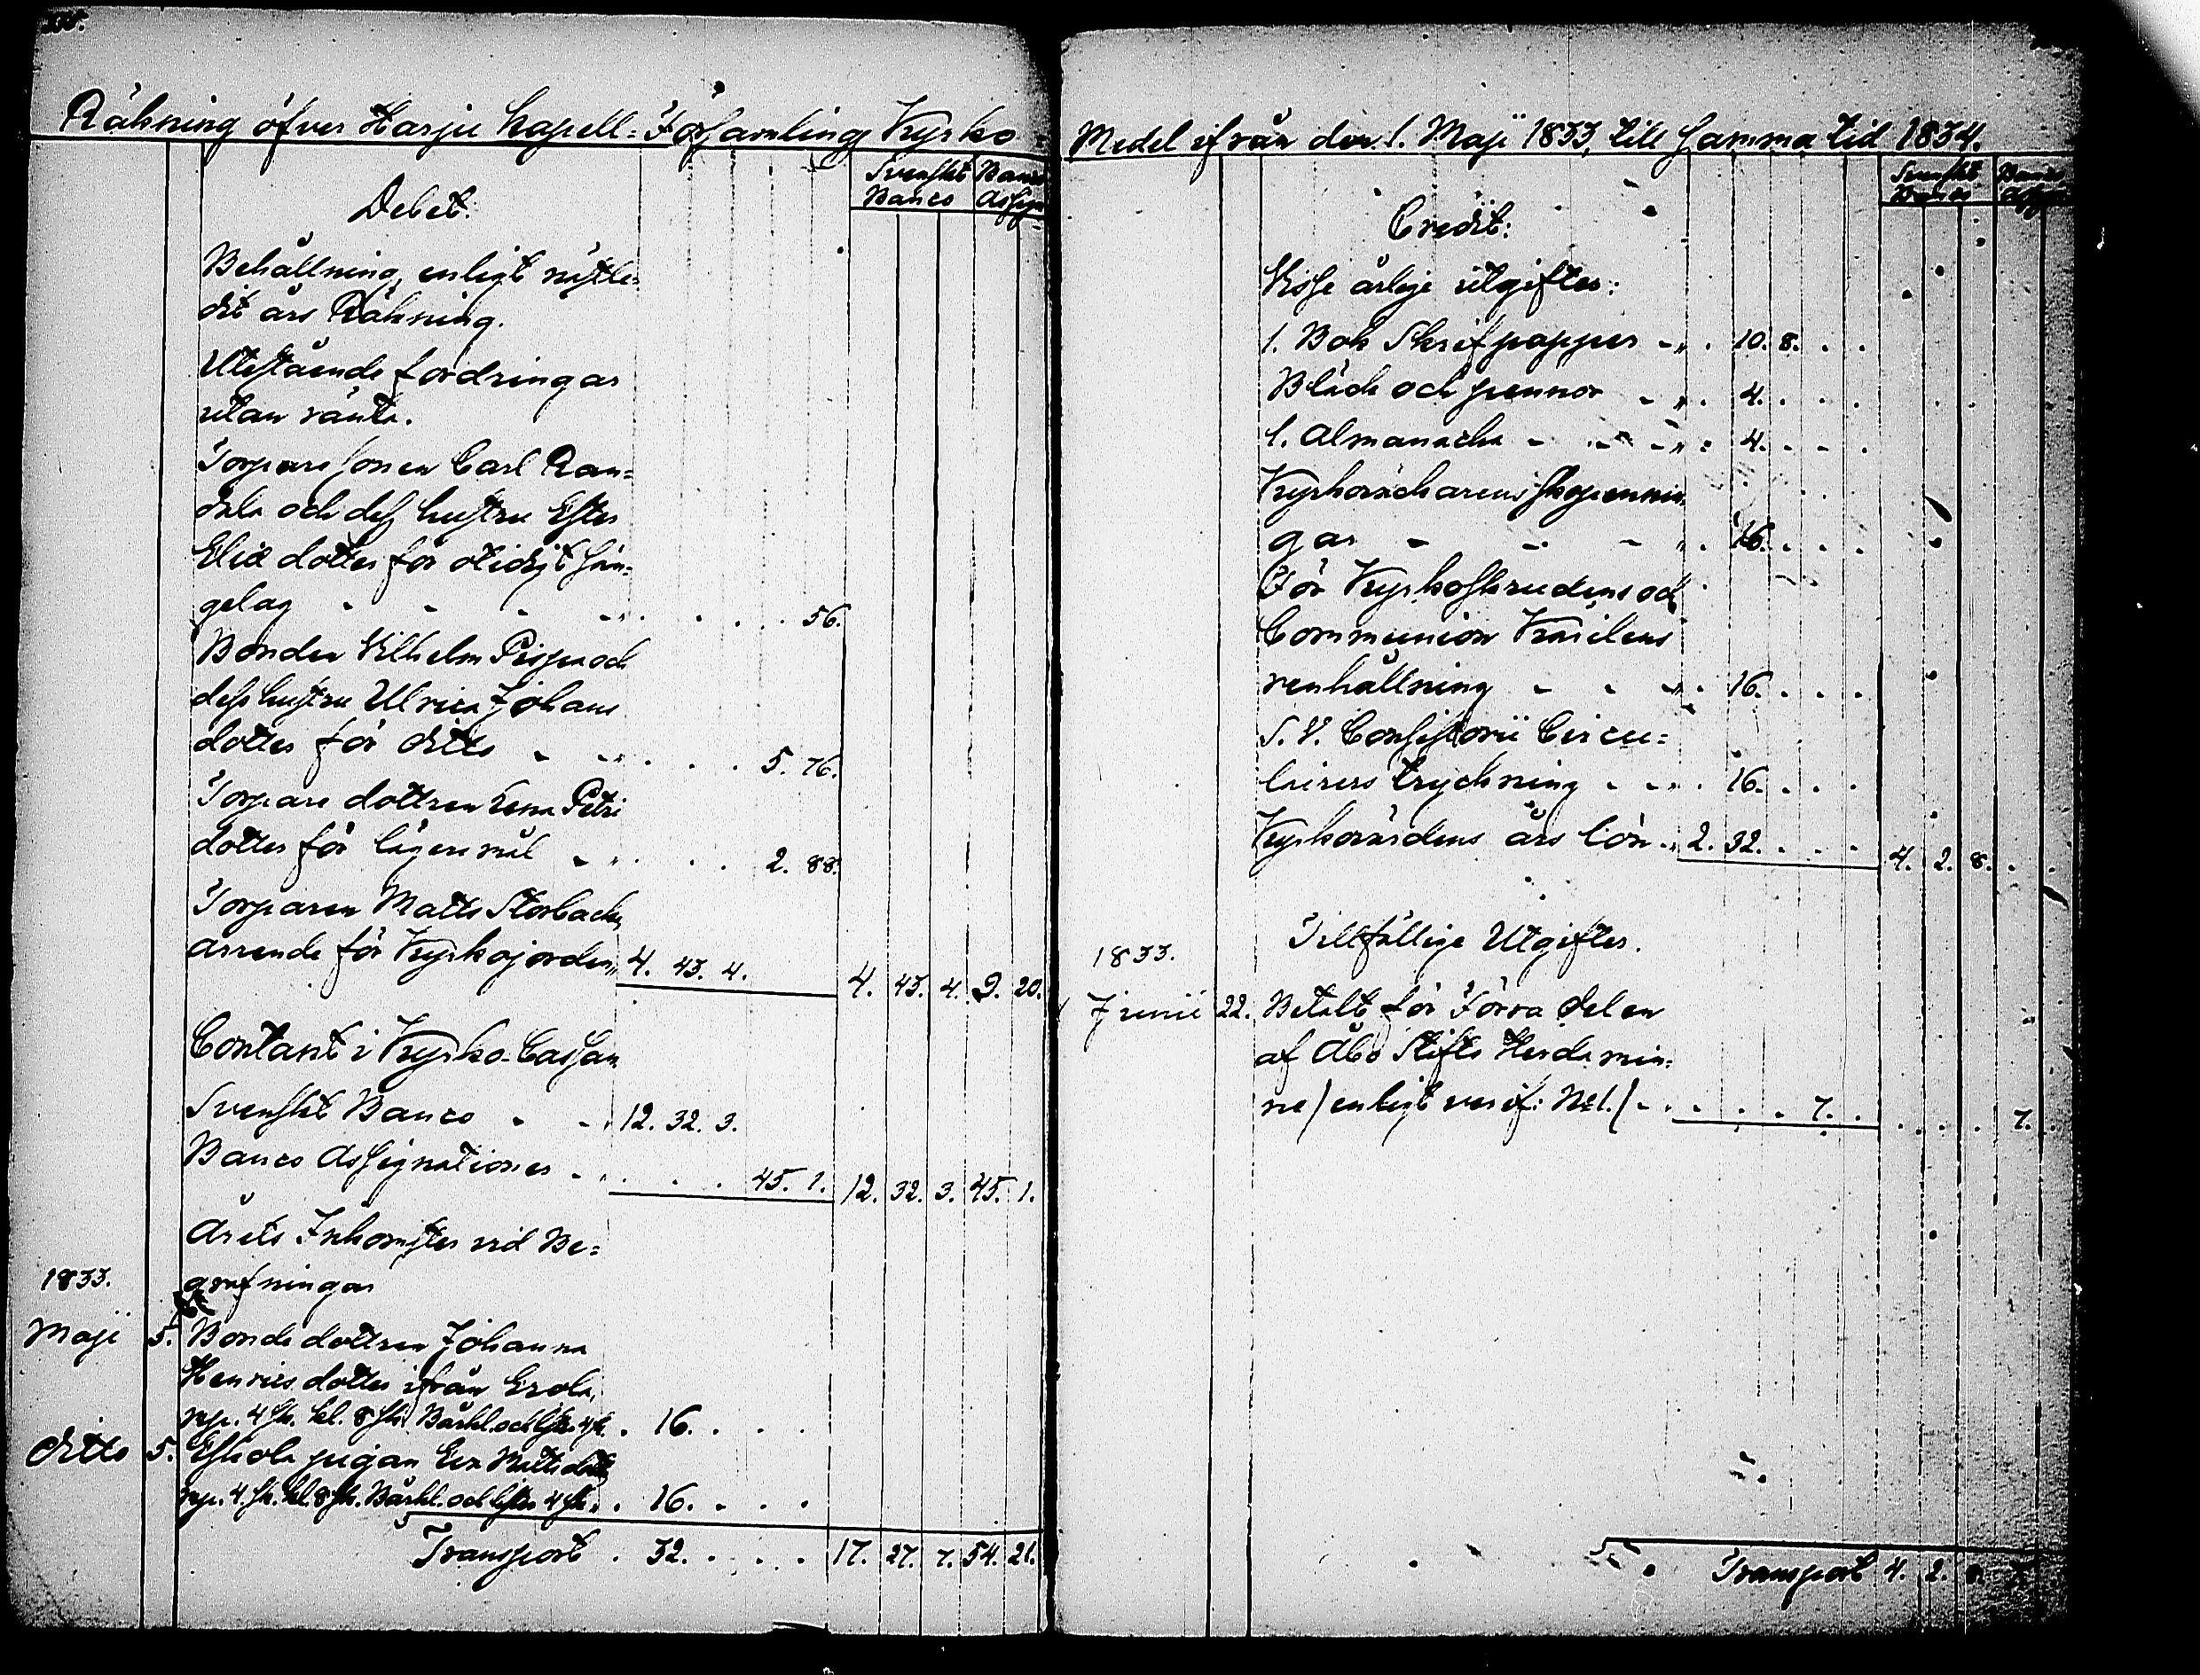 Räkning öfver Harju Kapell-Församlings Kyrko-
Svenskt Banco
Banco Assign
Debet.
Behållning, enligt nästle-
dit års Räkning.
Utestående fordringar
utan ränta.
Torpare sonen Carl Ran-
dala och dess hustru Ester
Eliæ dotter för otidigt sän-
gelag - - - . . . . 56.
Bonden Vilhelm Pispa och
dess hustru Ulrica Johans
dotter för ditto - - . . . 5. 76.
Torpare dottren Lena Petri
dotter för lägersmål - . . . 2. 88.
Torparen Matts Storbacka
arrende för Kyrkojorden 4. 43. 4. 4. 43. 4. 9. 20.
Contant i Kyrko-Cassan
Svenskt Banco - - 12. 32. 3.
Banco Assignationer - . . . 45. 1. 12. 32. 3. 45. 1.
Årets Inkomster vid Be-
1833. grafningar
Maji 5. Bonde dottren Johanna
Henrics dotter ifrån Erola,
np. 4 sk. kl. 8 sk. Bårkl. och 4 sk . 16. . . .
Ditto 5. Eskola pigan Matts dotter
np. 4. sk. kl. 8 sk. Bårkl. och 4 sk . 16. . . .
Transport . 32. . . . 17. 27. 7. 54. 21.
Medel ifrån den 1. Maji 1833, till samma tid 1834.
Svenskt Banco
Banco Assign
Credit:
Visse årlige utgifter:
1. Bok Skrifpapper - . 10. 8. . .
Bläck och pennor - . 4. . . .
1. Almanacha - - . 4. . . .
Kyrkoväcktarens skopennin-
gar - - - . 16. . . .
För Kyrkoskrudens och
Communion Kärilens
renhållning - - . 16. . . .
S. V. Consistorii Circu-
lairers tryckning - - . 16. . . .
Kyrkovärdens års lön - 2. 32. . . . 4. 2. 8. . .
Tillfällige Utgifter.
1833.
Junii 22. Betalt för Förra delen
af Åbo Stifts Herdamin-
ne / enligt verif: N:1. / - . . . . 7. . . . . . 7. .
Transport 4. 2. 8. 7.